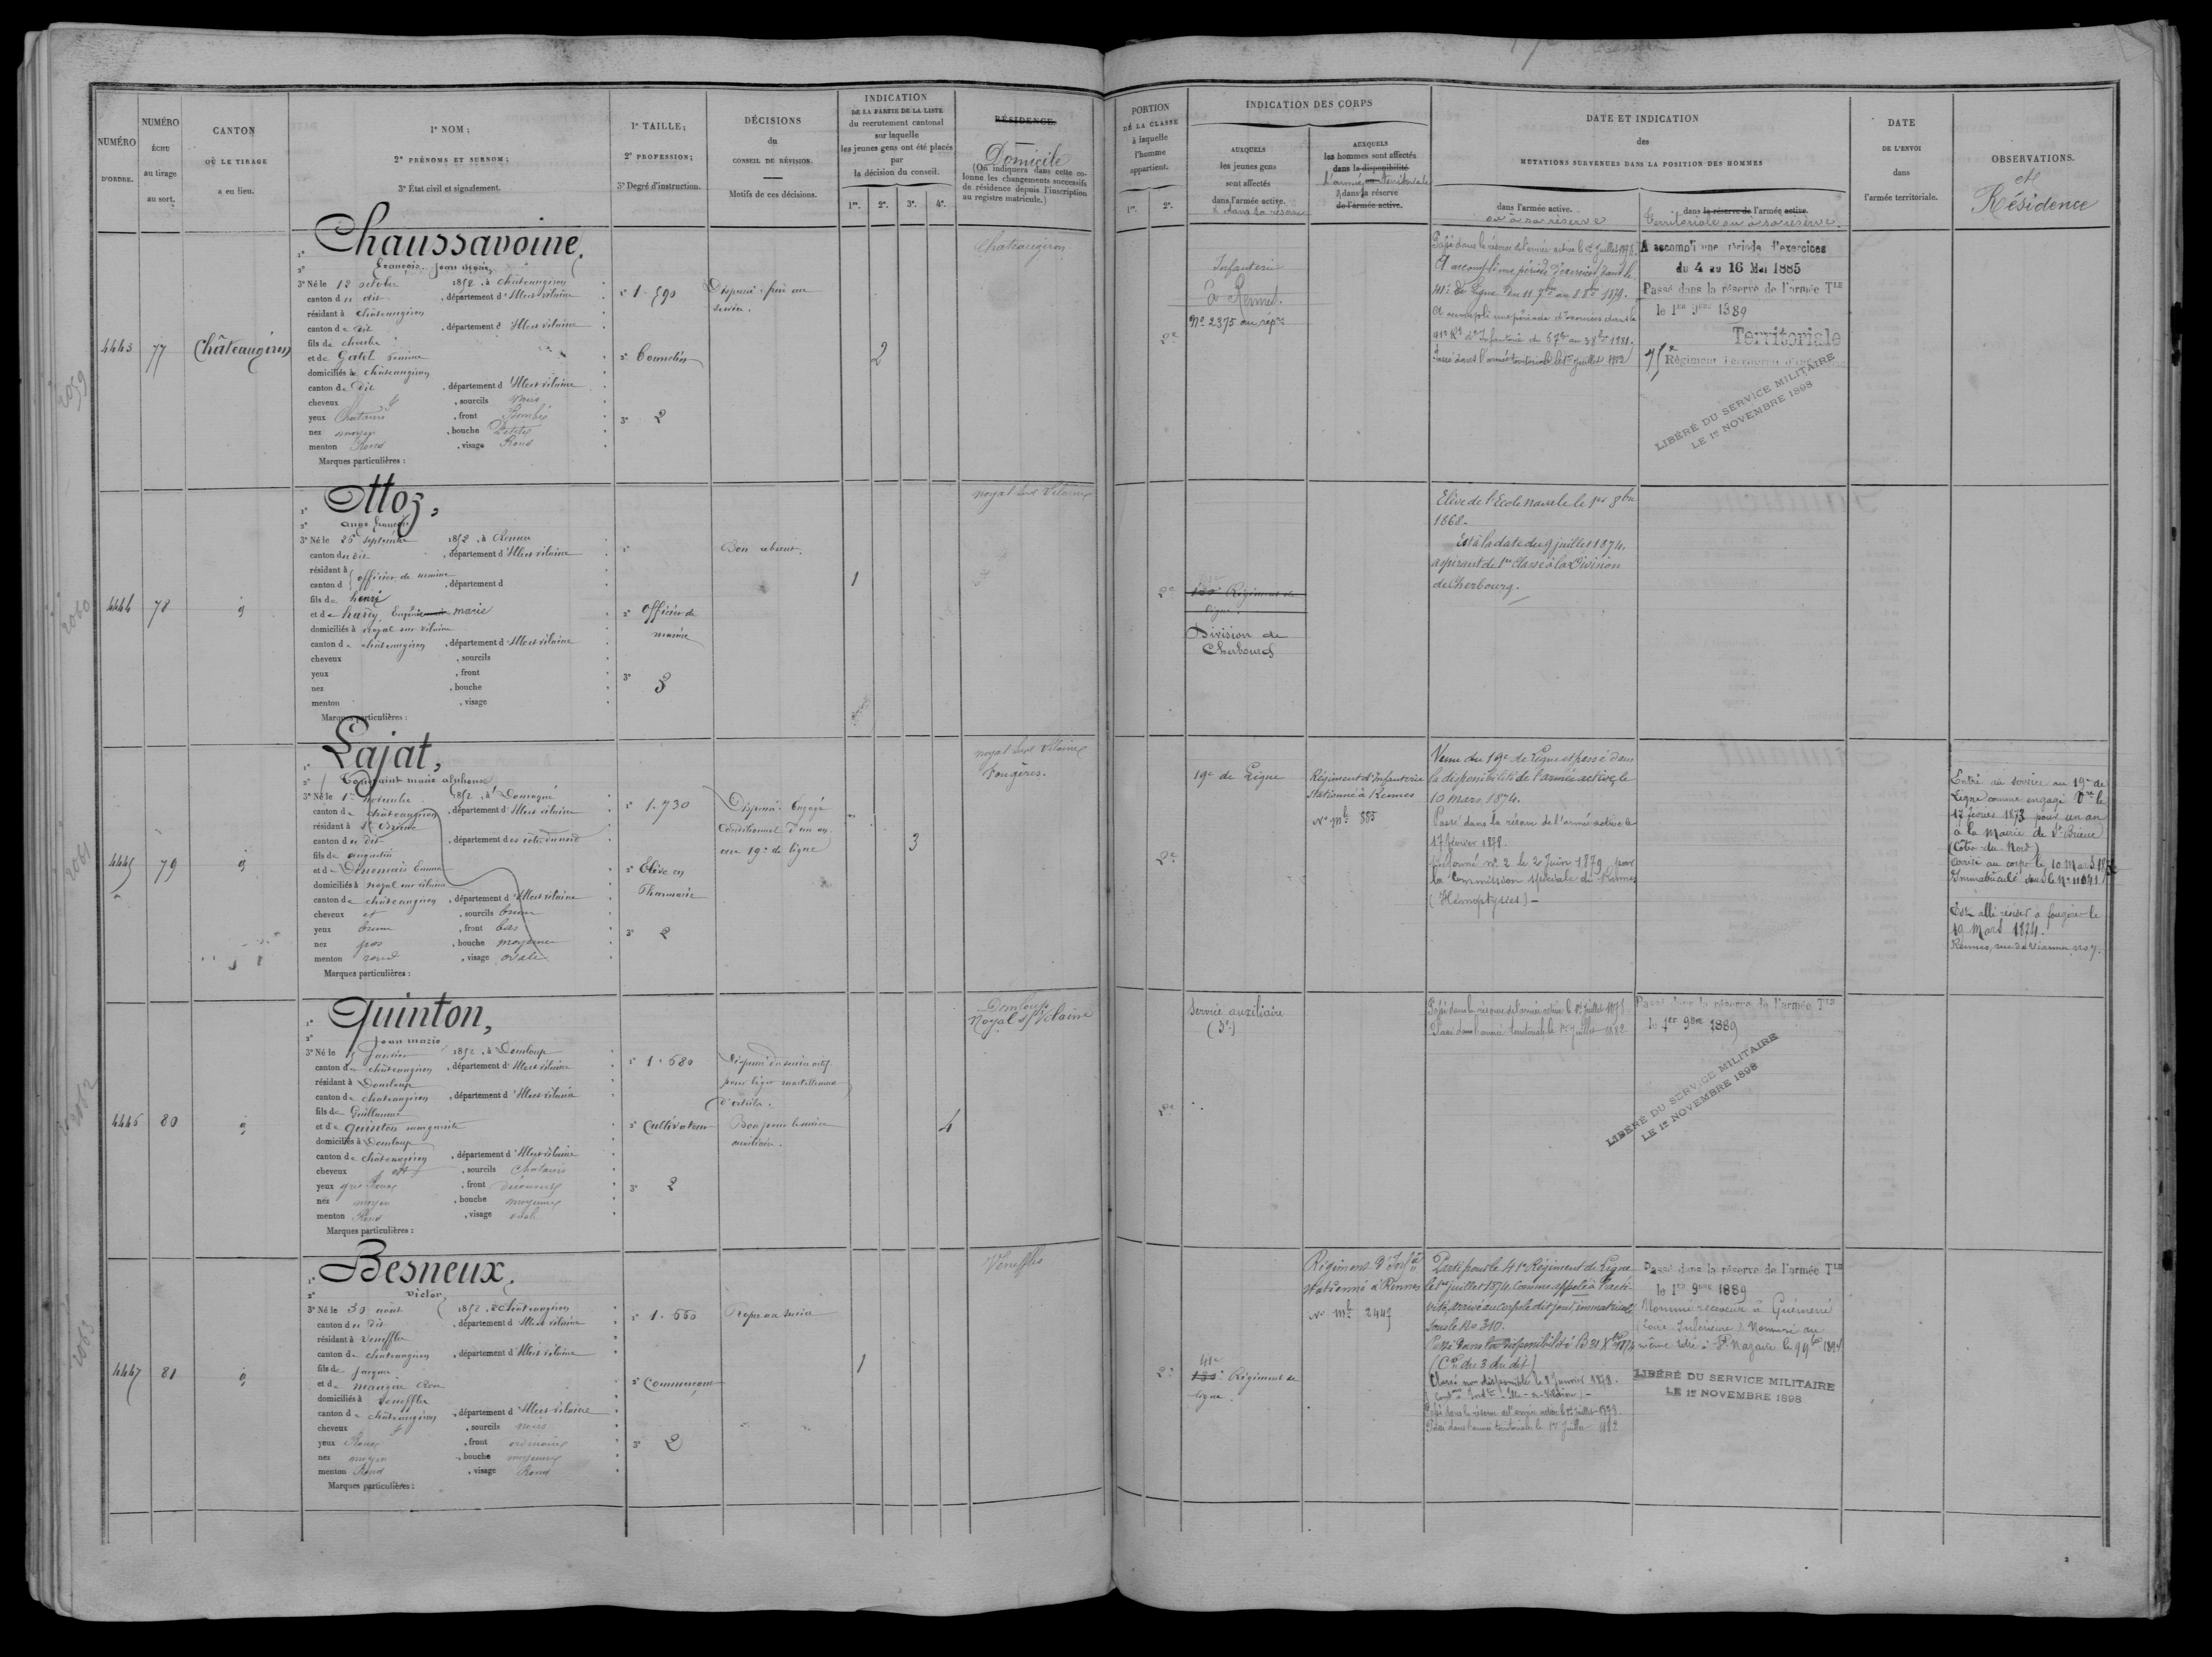 NUMÉRO D'ORDRE.
NUMÉRO ÉCHU au tirage au sort.
CANTON OÙ LE TIRAGE a eu lieu.
1° NOM;
2° PRÉNOMS ET SURNOM;
3° État civil et signalement.
1° TAILLE;
2° PROFESSION;
3° Degré d'instruction.
DÉCISIONS
du
CONSEIL DE RÉVISION.
Motifs de ces décisions.
INDICATION
DE LA PARTIE DE LA LISTE
du recrutement cantonal
sur laquelle
les jeunes gens ont été placés
par
la décision du conseil.
1re. 2e. 3e. 4e.
RÉSIDENCE.
Domicile
(On indiquera dans cette co-
lonne les changements successifs
de résidence depuis l'inscription
au registre matricule.)
PORTION
DE LA CLASSE
à laquelle
l'homme
appartient.
1re. 2e.
INDICATION DES CORPS
AUXQUELS
les jeunes gens
sont affectés
dans l'armée active.
& dans sa réserve
AUXQUELS
les hommes sont affectés
dans la disponibilité
l'armée Territoriale
& dans sa réserve
de l'armée active.
DATE ET INDICATION
des
MUTATIONS SURVENUES DANS LA POSITION DES HOMMES
dans l'armée active.
ou à sa réserve
dans la réserve de l'armée active.
Territoriale ou à sa réserve.
DATE
DE L'ENVOI
dans
l'armée territoriale.
OBSERVATIONS.
et
Résidence
2059
4443
77
Châteaugiron
1° Chaussavoine,
2° François Jean Marie
3° Né le 12 octobre 1852, à Châteaugiron
canton du dit, département d'Ille et vilaine
résidant à Châteaugiron
canton de dit, département d'Ille et vilaine
fils de Charles
et de Gatel
domiciliés à Châteaugiron
canton de dit, département d'Ille et vilaine
cheveux et, sourcils noirs
yeux Chatains, front Bombé
nez moyen, bouche Petite
menton Rond, visage Rond
Marques particulières :
1° 1.590
3° 2
Dispensé frère au
service.
2
Chateaugiron
2e
Infanterie
à Rennes.
No 2375 au répre
Passé dans la réserve de l'armée active le 1er Juillet 1878.
A accompli une période d'exercices dans le
41e de Ligne du 11 7bre au 8 8bre 1879.
A accompli une période d'exercices dans le
Passé dans l'armée territoriale le 1er Juillet 1882
A accompli une période d'exercices
du 4 au 16 Mai 1885
Passé dans la réserve de l'armée Tle
le 1er 9bre 1889
Territoriale
75e Régiment Territorial d'Infanterie
LIBÉRÉ DU SERVICE MILITAIRE
LE 1er NOVEMBRE 1898
2060
4444
78
d
1° Ange François
3° Né le 26 septembre 1852, à Rennes
canton du dit, département d'Ille et vilaine
résidant à officier de marine
canton d, département d
fils de henri
et de hardy, Eugénie marie
domiciliés à noyal sur vilaine
canton de châteaugiron, département d'Ille et vilaine
cheveux, sourcils
yeux, front
nez, bouche
menton, visage
Marques particulières :
2° officier de
marine
3° 3
Bon absent.
1
noyal sur Vilaine
2e
Régiment de
ligne.
Division de
Cherbourg
Elève de l'Ecole navale le 1er 8bre
1868.
Est à la date du 9 juillet 1874,
aspirant de 1re Classe à la Division
de Cherbourg.
2061
4445
79
d
1° Lajat,
2° Toussaint marie alphonse
3° Né le 1er novembre 1852, à Domagné
canton de châteaugiron, département d'Ille et vilaine
résidant à St Brieuc
canton du dit, département des côtes du nord
fils de augustin
et de Emma
domiciliés à noyal sur vilaine
canton de châteaugiron, département d'Ille et vilaine
cheveux et, sourcils bruns
yeux bruns, front bas
nez gros, bouche moyenne
menton rond, visage ovale
Marques particulières :
1° 1.730
2° Elève en
Pharmacie
3° 2
Dispensé. Engagé
conditionnel d'un an
au 19e de ligne
3
noyal sur Vilaine
Fougères.
2e
19e de Ligne
Régiment d'Infanterie
stationné à Rennes
No mle 885
Venu du 19e de Ligne et passé dans
la disponibilité de l'armée active, le
10 mars 1874.
Passé dans la réserve de l'armée active le
17 février 1878.
Réformé no 2 le 2 Juin 1879 par
la Commission spéciale de Rennes
(Hémoptysies)
Entré au service au 19e de
Ligne comme engagé Vre le
17 février 1873 pour un an
à la Mairie de St Brieuc
(Côtes du Nord)
arrivé au corps le 10 Mars 1873
Immatriculé sous le No 11041
Est allé résider à fougères le
19 Mars 1874.
Rennes, rue de Vianne, no 7.
2062
4446
80
d
1° Quinton,
2° Jean marie
3° Né le 5 Janvier 1852, à Domloup
canton de châteaugiron, département d'Ille et vilaine
résidant à Domloup
canton de châteaugiron, département d'Ille et vilaine
fils de Guillaume
et de Quinton marguerite
domiciliés à Domloup
canton de châteaugiron, département d'Ille et vilaine
cheveux et, sourcils chatains
yeux gris roux, front découvert
nez moyen, bouche moyenne
menton Rond, visage ovale
Marques particulières :
1° 1.680
2° Cultivateur
3° 2
Dispensé du service actif
pour
d'orteils.
Bon pour le service
auxiliaire.
4
Domloup
Noyal s/ Vilaine
2e
Service auxiliaire
(3e)
Passé dans la réserve de l'armée active le 1er Juillet 1878
Passé dans l'armée territoriale le 1er Juillet 1882
Passé dans la réserve de l'armée Tle
le 1er 9bre 1889
LIBÉRÉ DU SERVICE MILITAIRE
LE 1er NOVEMBRE 1898
2063
4447
81
d
1° Besneux,
2° Victor
3° Né le 30 août 1852, à Châteaugiron
canton du dit, département d'Ille et vilaine
résidant à Veneffles
canton de châteaugiron, département d'Ille et vilaine
fils de Jacques
et de
domiciliés à Veneffles
canton de châteaugiron, département d'Ille et vilaine
cheveux et, sourcils noirs
yeux Roux, front ordinaire
nez moyen, bouche moyenne
menton Rond, visage Rond
Marques particulières :
1° 1.660
2° Commerçant
3° 2
Propre au service
1
Veneffles
2e
41e
Régiment de
ligne.
Régiment d'Infie
stationné à Rennes
No Mle 2447
Parti pour le 41e Régiment de Ligne
le 1er juillet 1874, comme appelé à l'acti-
vité, arrivé au corps le dit jour, immatriculé
sous le No 310.
Passé dans la disponibilité le 31 Xbre 1874
Classé non disponible le 1er Janvier 1878.
Passé dans la réserve de l'armée active le 1er juillet 1878.
Passé dans l'armée territoriale le 1er Juillet 1882
Passé dans la réserve de l'armée Tle
le 1er 9bre 1889
Nommé receveur à Guémené
(Loire-Inférieure). Nommé au
même titre à St Nazaire le
LIBÉRÉ DU SERVICE MILITAIRE
LE 1er NOVEMBRE 1898